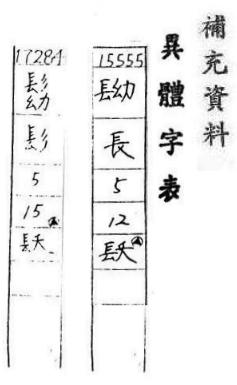 補充資料
異體字表
15555
長
5
12
17284
髟
5
15